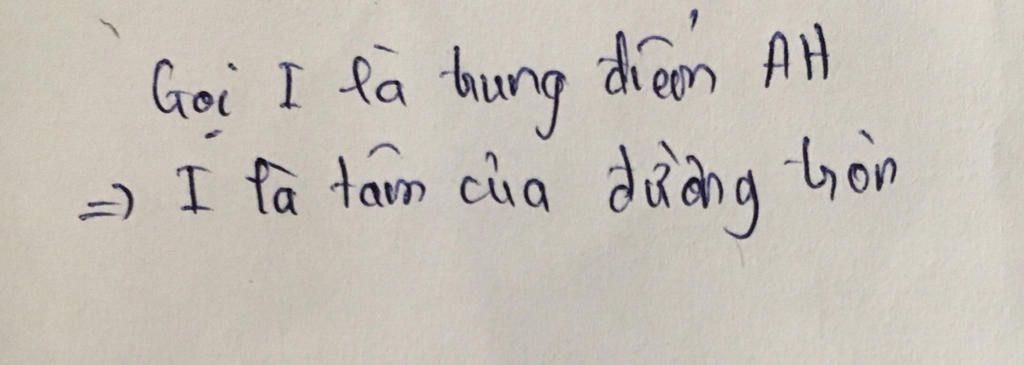 Gọi I là trung điểm AH
=> I là tâm của đường tròn